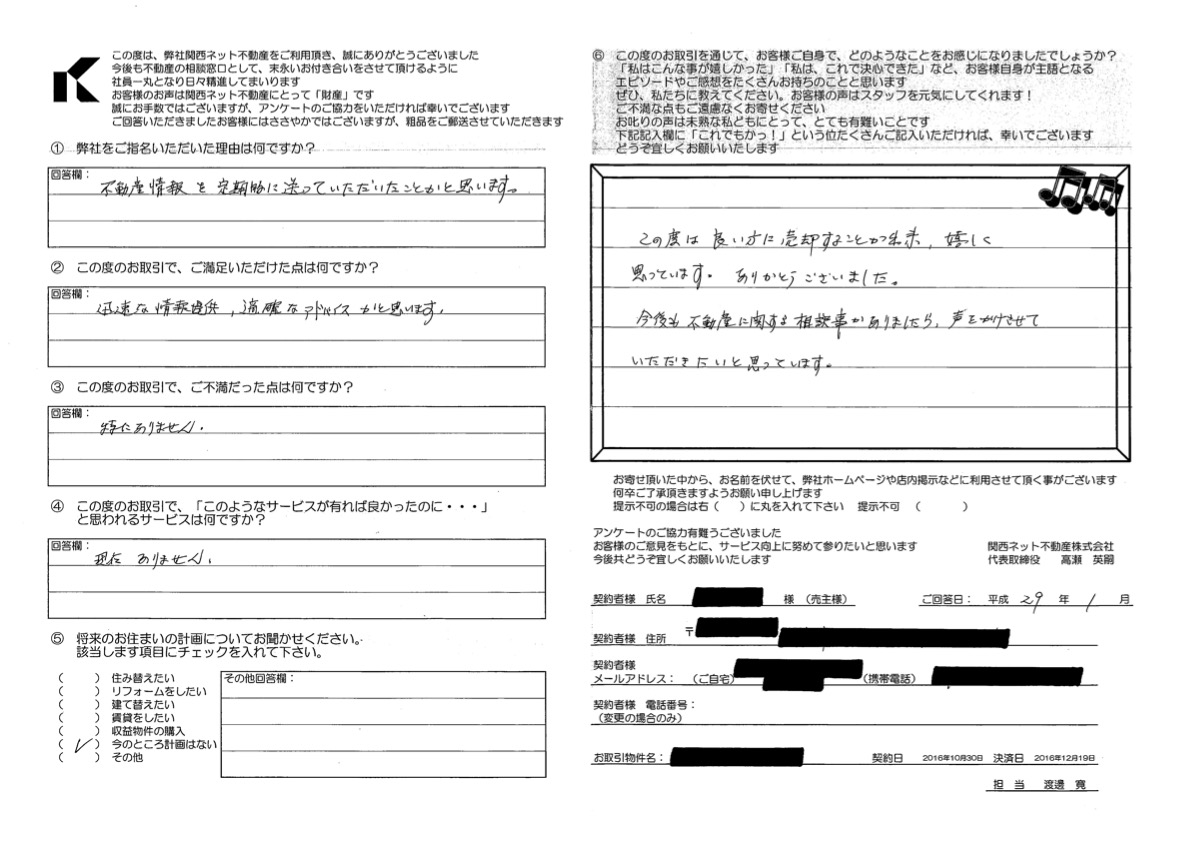 この度は、弊社関西ネット不動産をご利用頂き、誠にありがとうございました
今後も不動産の相談窓口として、末永いお付き合いをさせて頂けるように
社員一丸となり日々精進してまいります
お客様のお声は関西ネット不動産にとって「財産」です
誠にお手数ではございますが、アンケートのご協力をいただければ幸いでございます
ご回答いただきましたお客様にはささやかではございますが、粗品をご郵送させていただきます
① 弊社をご指名いただいた理由は何ですか？
回答欄：
不動産情報を定期的に送っていただいたことかと思います。
② この度のお取引で、ご満足いただけた点は何ですか？
回答欄：
迅速な情報提供，適確なアドバイスかと思います．
③ この度のお取引で、ご不満だった点は何ですか？
回答欄：
特にありません．
④ この度のお取引で、「このようなサービスが有れば良かったのに・・・」
と思われるサービスは何ですか？
回答欄：
ありません．
⑤ 将来のお住まいの計画についてお聞かせください。
該当します項目にチェックを入れて下さい。
（　）住み替えたい
（　）リフォームをしたい
（　）建て替えたい
（　）賃貸をしたい
（　）収益物件の購入
（✓）今のところ計画はない
（　）その他
その他回答欄：
⑥ この度のお取引を通じて、お客様ご自身で、どのようなことをお感じになりましたでしょうか？
「私はこんな事が嬉しかった」「私は、これで決心できた」など、お客様自身が主語となる
エピソードやご感想をたくさんお持ちのことと思います
ぜひ、私たちに教えてください。お客様の声はスタッフを元気にしてくれます！
ご不満な点もご遠慮なくお寄せください
お叱りの声は未熟な私どもにとって、とても有難いことです
下記記入欄に「これでもかっ！」という位たくさんご記入いただければ、幸いでございます
どうぞ宜しくお願いいたします
この度は良い方に売却することが出来，嬉しく
思っています．ありがとうございました。
今後も不動産に関する相談事がありましたら，声をかけさせて
いただきたいと思っています。
お寄せ頂いた中から、お名前を伏せて、弊社ホームページや店内掲示などに利用させて頂く事がございます
何卒ご了承頂きますようお願い申し上げます
提示不可の場合は右（　）に丸を入れて下さい　提示不可　（　　　）
アンケートのご協力有難うございました
お客様のご意見をもとに、サービス向上に努めて参りたいと思います
今後共どうぞ宜しくお願いいたします
関西ネット不動産株式会社
代表取締役　高瀬　英嗣
契約者様 氏名　様（売主様）　ご回答日：平成 29 年 1 月
契約者様 住所　〒
契約者様
メールアドレス：（ご自宅）　（携帯電話）
契約者様 電話番号：
（変更の場合のみ）
お取引物件名：　契約日　2016年10月30日　決済日　2016年12月19日
担　当　渡邊　寛